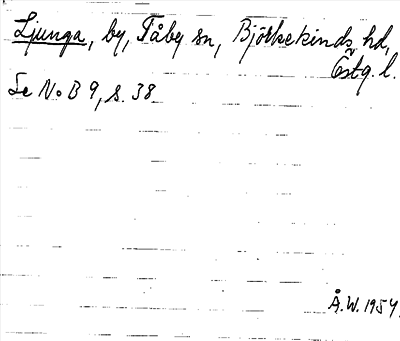 Ljunga, by, Tåby sn, Björkekinds hd,
Östg. l.
Se No B 9, s. 38
Å.W. 1954.